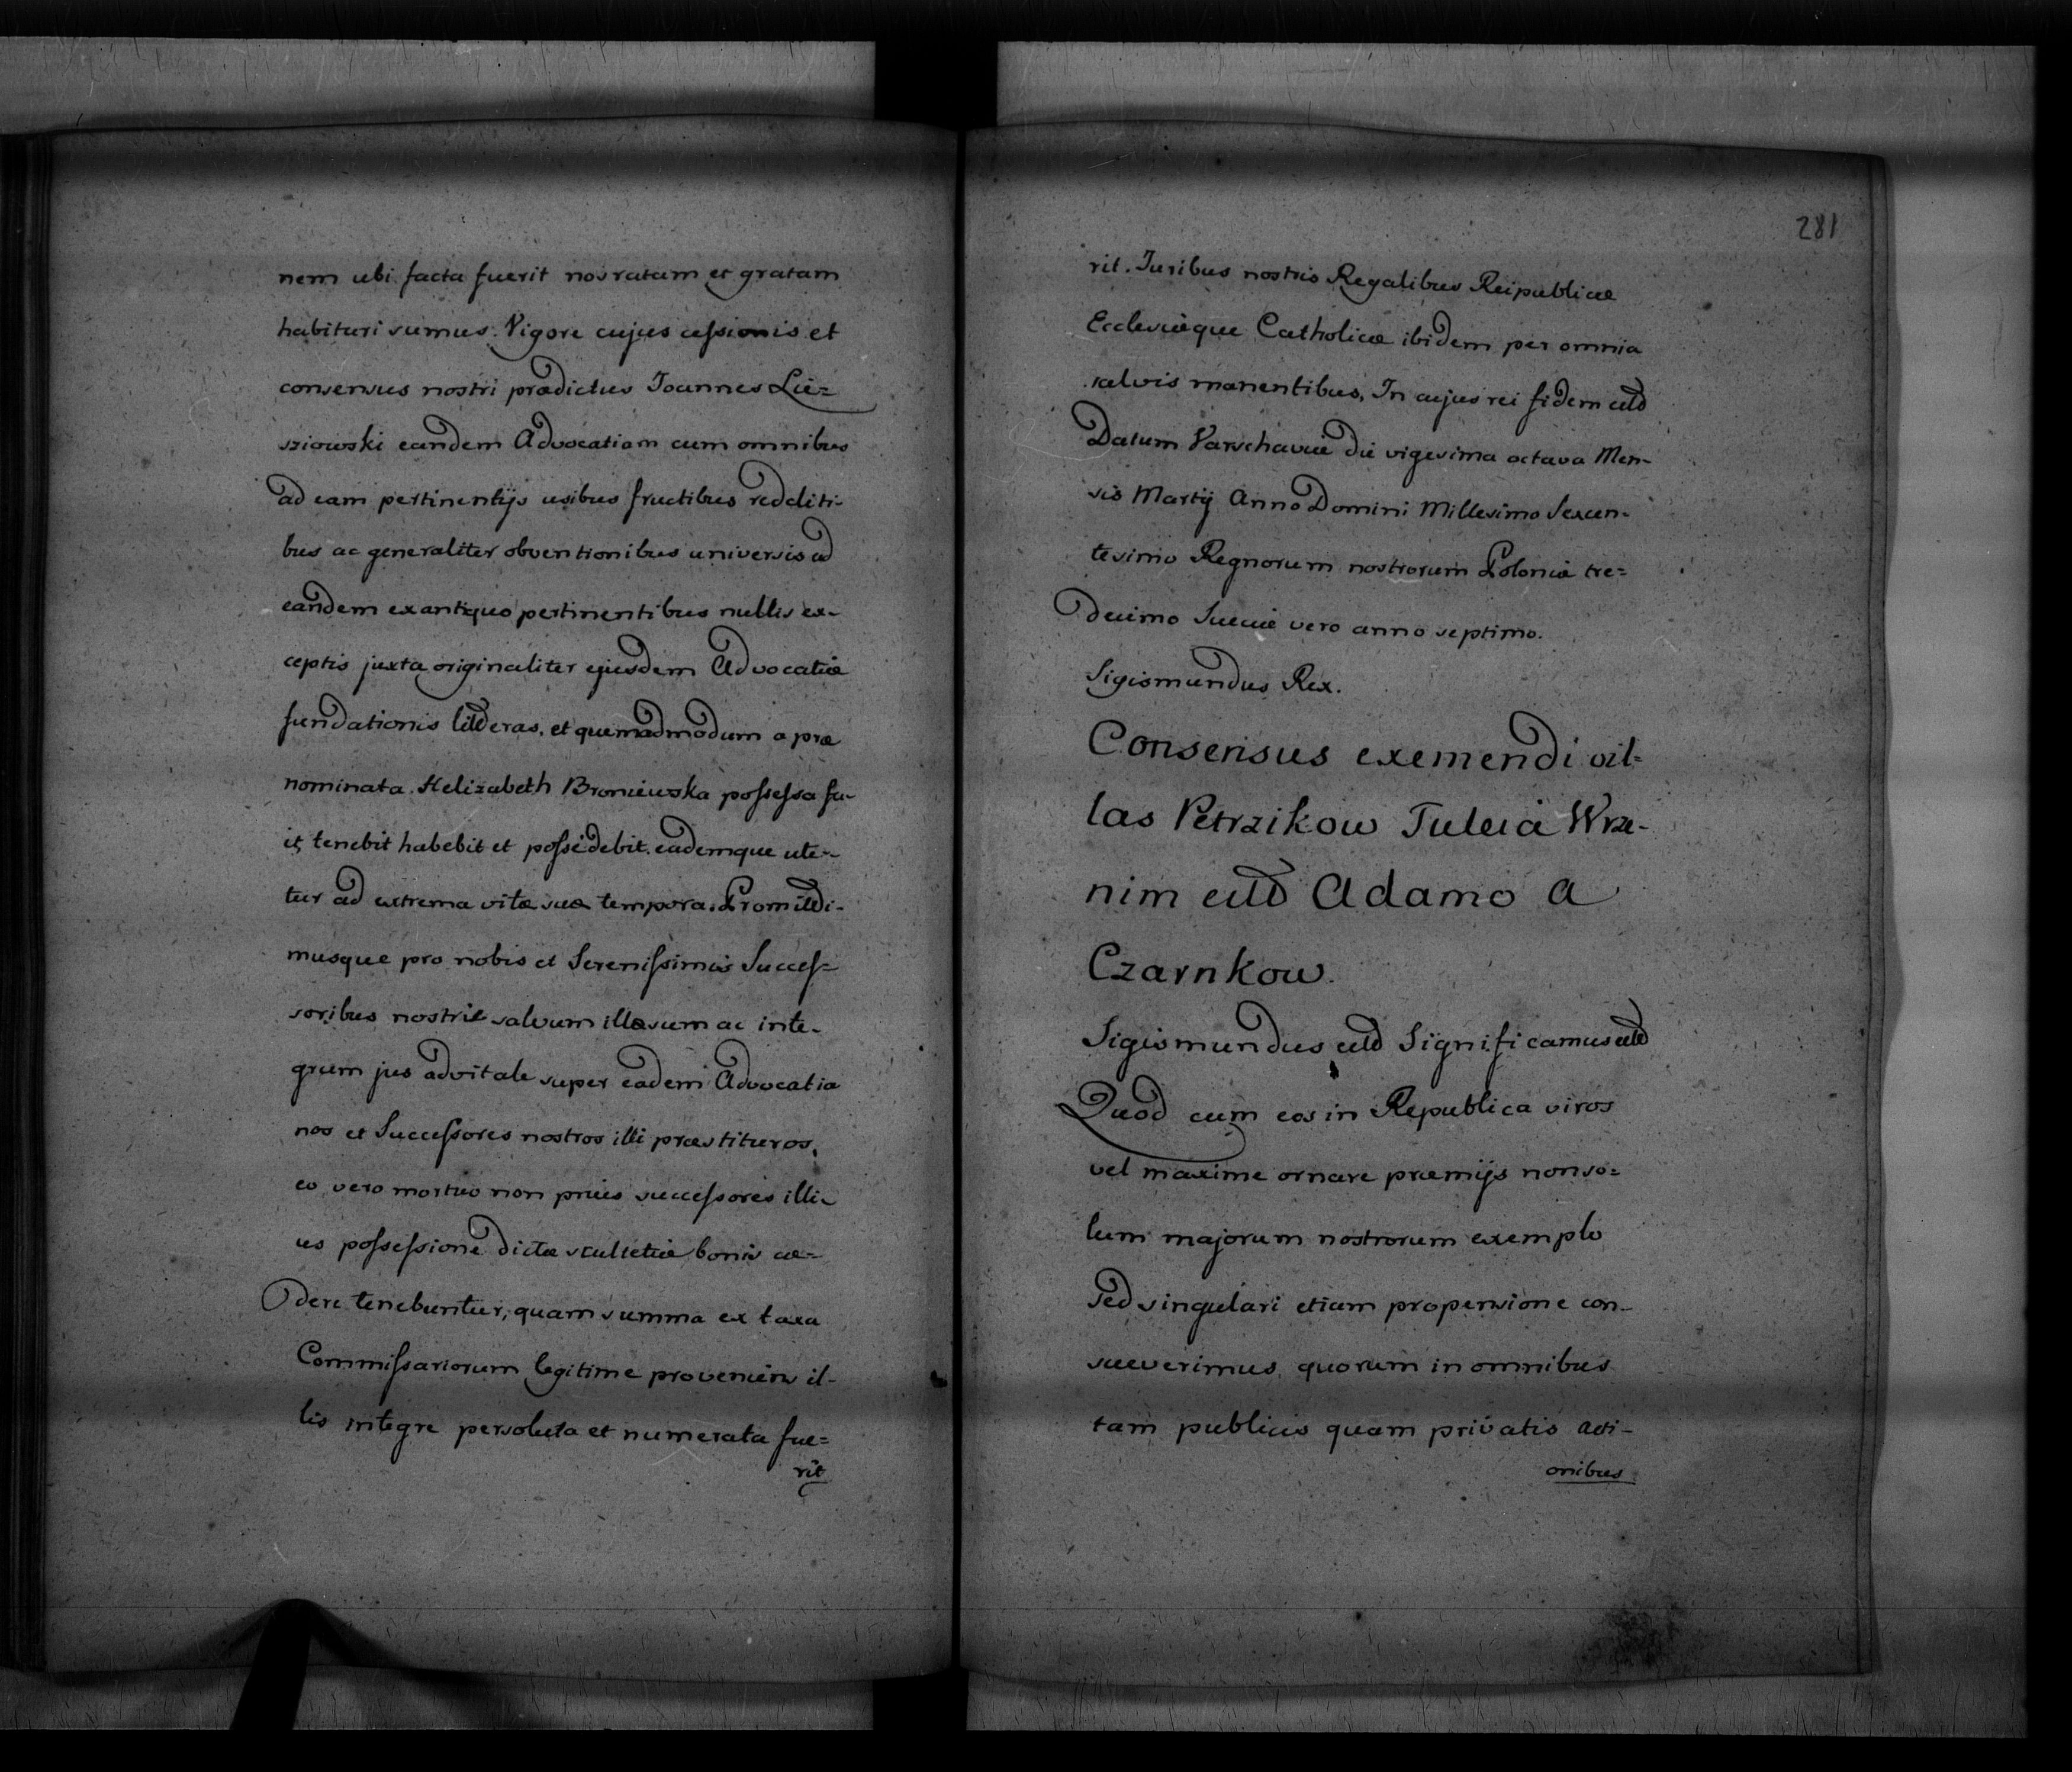 nem ubi facta fuerit nos ratam et gratam
habituri sumus. Vigore cujus cessionis et
consensus nostri prædictus Joannes Lie=
sziowski eandem Advocatiam cum omnibus
ad eam pertinentijs usibus fructibus redditi-
bus ac generaliter obventionibus universis ad
eandem ex antiquo pertinentibus nullis ex-
ceptis juxta originaliter ejusdem Advocatiæ
fundationis litteras, et quemadmodum a præ
nominata Helizabeth Broniewska possessa fu-
it, tenebit habebit et possidebit eademque ute-
tur ad extrema vitæ suæ tempora. Promitti-
musque pro nobis et Serenissimis Succes=
soribus nostris salvum illæsum ac inte-
grum jus advitale super eadem Advocatia
nos et Successores nostros illi præstituros,
eo vero mortuo non prius successores illi-
us possessione dictæ scultetiæ bonis cæ-
dere tenebuntur, quam summa ex taxa
Commissariorum legitime proveniens il-
lis integre persoluta et numerata fue=
rit
281
rit. Juribus nostris Regalibus Reipublicæ
Ecclesiæque Catholicæ ibidem per omnia
salvis manentibus, In cujus rei fidem ett
Datum Varschaviæ die vigesima octava Men-
sis Martij Anno Domini Millesimo Sexcen-
tesimo Regnorum nostrorum Poloniæ tre=
decimo Sueciæ vero anno septimo.
Sigismundus Rex.
Consensus exemendi vil=
las Petrzikow Tuleia Wrze-
nim ett Adamo a
Czarnkow.
Sigismundus ett Significamus ett
Quod cum eos in Republica viros
vel maxime ornare præmijs non so=
lum majorum nostrorum exemplo
sed singulari etiam propensione con-
sueverimus, quorum in omnibus
tam publicis quam privatis acti-
onibus